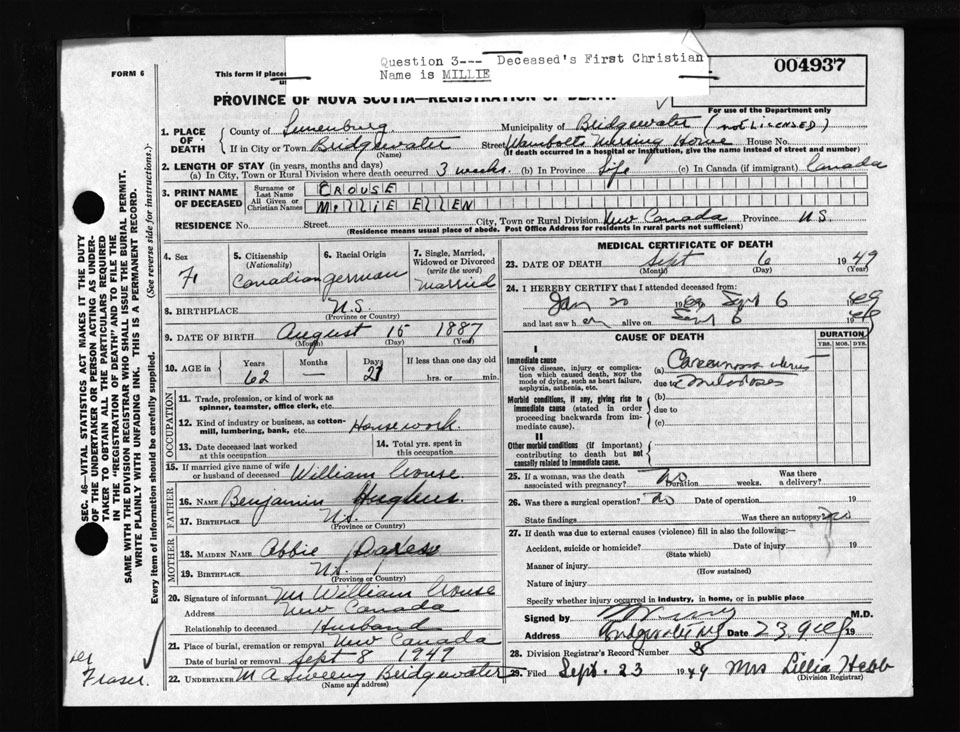 Question 3--- Deceased's First Christian
Name is MILLIE
FORM 6
This form if placed
004937
PROVINCE OF NOVA SCOTIA—REGISTRATION OF DEATH
For use of the Department only
1. PLACE OF DEATH
County of Lunenburg Municipality of Bridgewater (not LICENSED)
If in City or Town Bridgewater Street Nursing Home House No.
(Name) (If death occurred in a hospital or institution, give the name instead of street and number)
2. LENGTH OF STAY (in years, months and days)
(a) In City, Town or Rural Division where death occurred 3 weeks. (b) In Province Life (c) In Canada (if immigrant) Canada
3. PRINT NAME OF DECEASED
Surname or Last Name CROUSE
All Given or Christian Names MILLIE ELLEN
RESIDENCE No. Street City, Town or Rural Division New Canada Province N.S.
(Residence means usual place of abode. Post Office Address for residents in rural parts not sufficient)
4. Sex F
5. Citizenship (Nationality) Canadian
6. Racial Origin German
7. Single, Married, Widowed or Divorced (write the word) Married
8. BIRTHPLACE N.S.
(Province or Country)
9. DATE OF BIRTH August 15 1887
(Month) (Day) (Year)
10. AGE in Years 62 Months — Days 21 If less than one day old hrs. or min.
OCCUPATION
11. Trade, profession, or kind of work as spinner, teamster, office clerk, etc.
12. Kind of industry or business, as cotton-mill, lumbering, bank, etc. Housework
13. Date deceased last worked at this occupation
14. Total yrs. spent in this occupation
15. If married give name of wife or husband of deceased William Crouse
FATHER
16. NAME Benjamin Hughes
17. BIRTHPLACE N.S.
(Province or Country)
MOTHER
18. MAIDEN NAME Abbie
19. BIRTHPLACE N.S.
(Province or Country)
20. Signature of informant Mr William Crouse
Address New Canada
Relationship to deceased Husband
21. Place of burial, cremation or removal New Canada
Date of burial or removal Sept 8 1949
22. UNDERTAKER M A Sweeny Bridgewater
(Name and address)
MEDICAL CERTIFICATE OF DEATH
23. DATE OF DEATH Sept 6 1949
(Month) (Day) (Year)
24. I HEREBY CERTIFY that I attended deceased from:
Jan 20 19 Sept 6 1949
and last saw her alive on Sept 6 19
CAUSE OF DEATH
DURATION
YRS. MOS. DYS.
I
Immediate cause
Give disease, injury or complication which caused death, NOT the mode of dying, such as heart failure, asphyxia, asthenia, etc.
(a) Carcinoma uterus
due to
Morbid conditions, if any, giving rise to immediate cause (stated in order proceeding backwards from immediate cause).
(b)
due to
(c)
II
Other morbid conditions (if important) contributing to death but not causally related to immediate cause.
25. If a woman, was the death associated with pregnancy? No Duration weeks. Was there a delivery?
26. Was there a surgical operation? No Date of operation 19
State findings Was there an autopsy? no
27. If death was due to external causes (violence) fill in also the following:—
Accident, suicide or homicide? Date of injury 19
(State which)
Manner of injury
(How sustained)
Nature of injury
Specify whether injury occurred in industry, in home, or in public place
Signed by M.D.
Address Bridgewater NS Date 23 19
28. Division Registrar's Record Number
29. Filed Sept. 23 1949 Mrs Lillia Hebb
(Division Registrar)
SEC. 46—VITAL STATISTICS ACT MAKES IT THE DUTY
OF THE UNDERTAKER OR PERSON ACTING AS UNDER-
TAKER TO OBTAIN ALL THE PARTICULARS REQUIRED
IN THE "REGISTRATION OF DEATH" AND TO FILE THE
SAME WITH THE DIVISION REGISTRAR WHO SHALL ISSUE THE BURIAL PERMIT.
WRITE PLAINLY WITH UNFADING INK. THIS IS A PERMANENT RECORD.
Every item of information should be carefully supplied. (See reverse side for instructions.)
Fraser.